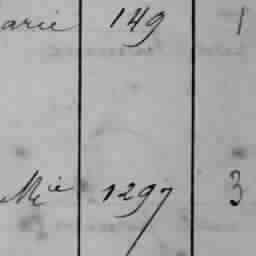 arie 149 1
Mie 1297 3